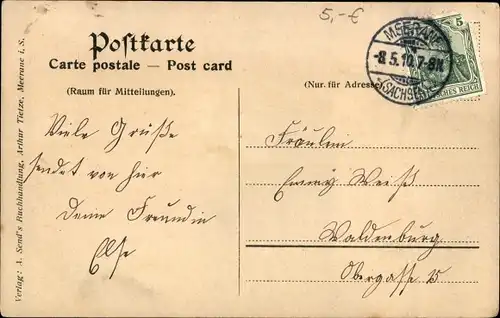 5,-€
Postkarte
Carte postale — Post card
(Raum für Mitteilungen).
(Nur für Adresse)
MEERANE
-8.5.10.7-8N.
(SACHSEN)
5
DEUTSCHES REICH
Viele Grüße
sendet von hier
Deine Freundin
Else
Fräulein
Emmy Weiß
Waldenburg
Obergasse
Verlag: A. Send's Buchhandlung, Arthur Tietze, Meerane i. S.